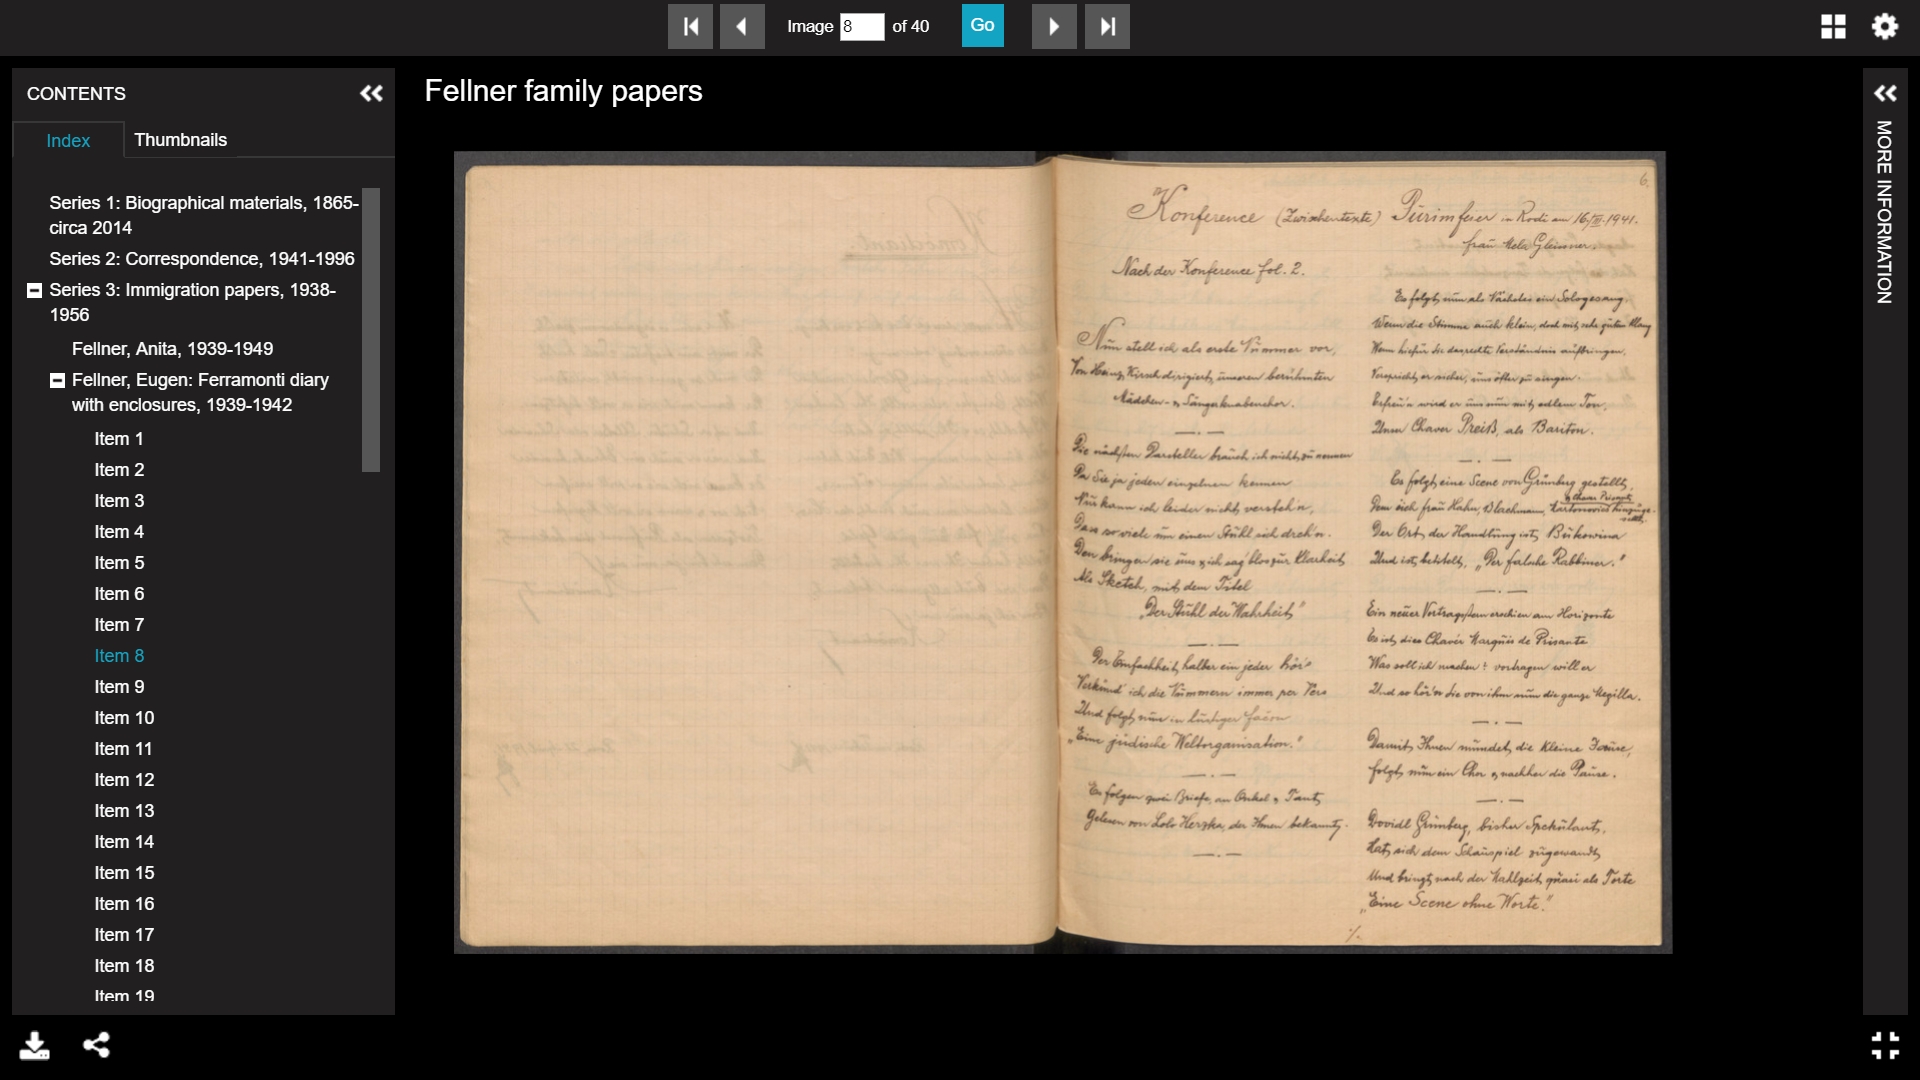 Image 8 of 40
Go
CONTENTS
Index
Thumbnails
Series 1: Biographical materials, 1865-
circa 2014
Series 2: Correspondence, 1941-1996
Series 3: Immigration papers, 1938-
1956
Fellner, Anita, 1939-1949
Fellner, Eugen: Ferramonti diary
with enclosures, 1939-1942
Item 1
Item 2
Item 3
Item 4
Item 5
Item 6
Item 7
Item 8
Item 9
Item 10
Item 11
Item 12
Item 13
Item 14
Item 15
Item 16
Item 17
Item 18
Item 19
Fellner family papers
6.
Konference (Zwischentexte) Purimfeier in Rodi am 16/III.1941.
Frau Mela
Nach der Konference fol. 2.
Nun stell ich als erste Nummer vor,
Von Heinz Hirsch dirigiert, unseren berühmten
Mädchen- u Sängerknabenchor.
Die nächsten Darsteller brauch ich nicht zu nennen
Da Sie ja jeden einzelnen kennen
Nur kann ich leider nicht versteh'n,
Dass so viele um einen Stuhl sich dreh'n.
Den bringen sie uns, ich sag' blos zur Klarheit
Als Sketch, mit dem Titel
„Der Stuhl der Wahrheit"
Der Einfachheit halber ein jeder hör'
Verkünd' ich die Nummern immer per Vers
Und folgt nun in lustiger Facon
„Eine jüdische Weltorganisation."
Es folgen zwei Briefe, an Onkel u Tant,
Gelesen von Lolo Herzka, der Ihnen bekannt.
Es folgt nun als Nächstes ein Sologesang.
Wenn die Stimme auch klein, doch mit sehr guten Klang
Wenn hiefür Sie das Verständnis aufbringen,
Verspricht er sicher, uns öfter zu singen.
Erfreu'n wird er uns nun mit edlem Ton,
Unser Chaver Preiß, als Bariton.
Es folgt eine Scene von Grünberg gestellt,
Dem sich Frau Hahn, Blachmann,
Der Ort der Handlung ist, Bukowina
Und ist betitelt, „Der falsche Rabbiner."
Ein neuer Vortragsstern erschien am Horizonte
Es ist dies Chaver Marquis de Prisante
Was soll ich machen? vortragen will er
Und so hör'n Sie von ihm nun die ganze Megilla.
Damit Ihnen mundet die kleine Jause,
Folgt nun ein Chor u nachher die Pause.
Dovidl Grünberg, bisher Spekulant,
Hat sich dem Schauspiel zugewandt
Und bringt nach der Mahlzeit quasi als Torte
„Eine Scene ohne Worte."
./.
MORE INFORMATION